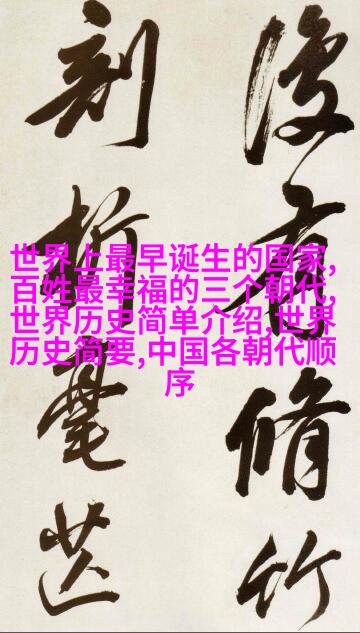 後有脩竹
世界上最早诞生的国家,
百姓最幸福的三个朝代,
世界历史简单介绍,世界
历史简要,中国各朝代顺
序